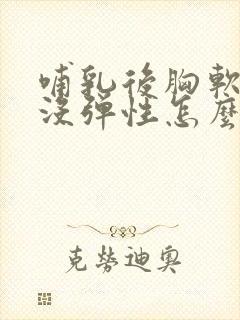 哺乳後胸軟
沒彈性怎麼
克勞迪奧